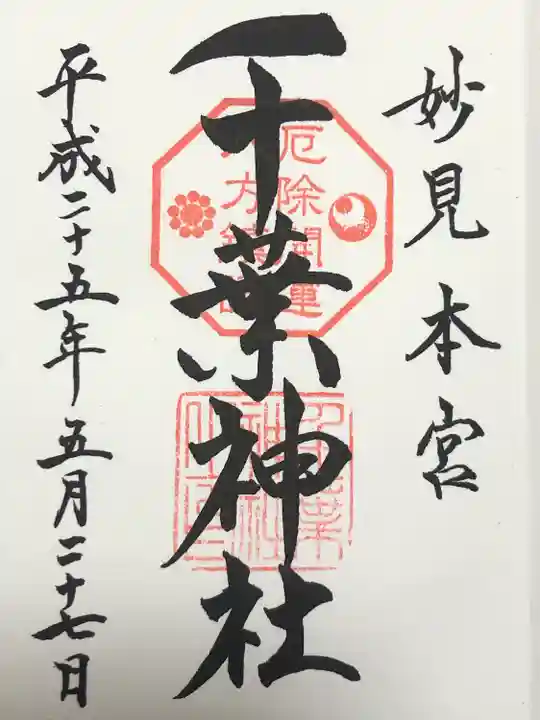 妙見本宮
千葉神社
厄除開運
八方除
平成二十五年五月二十七日